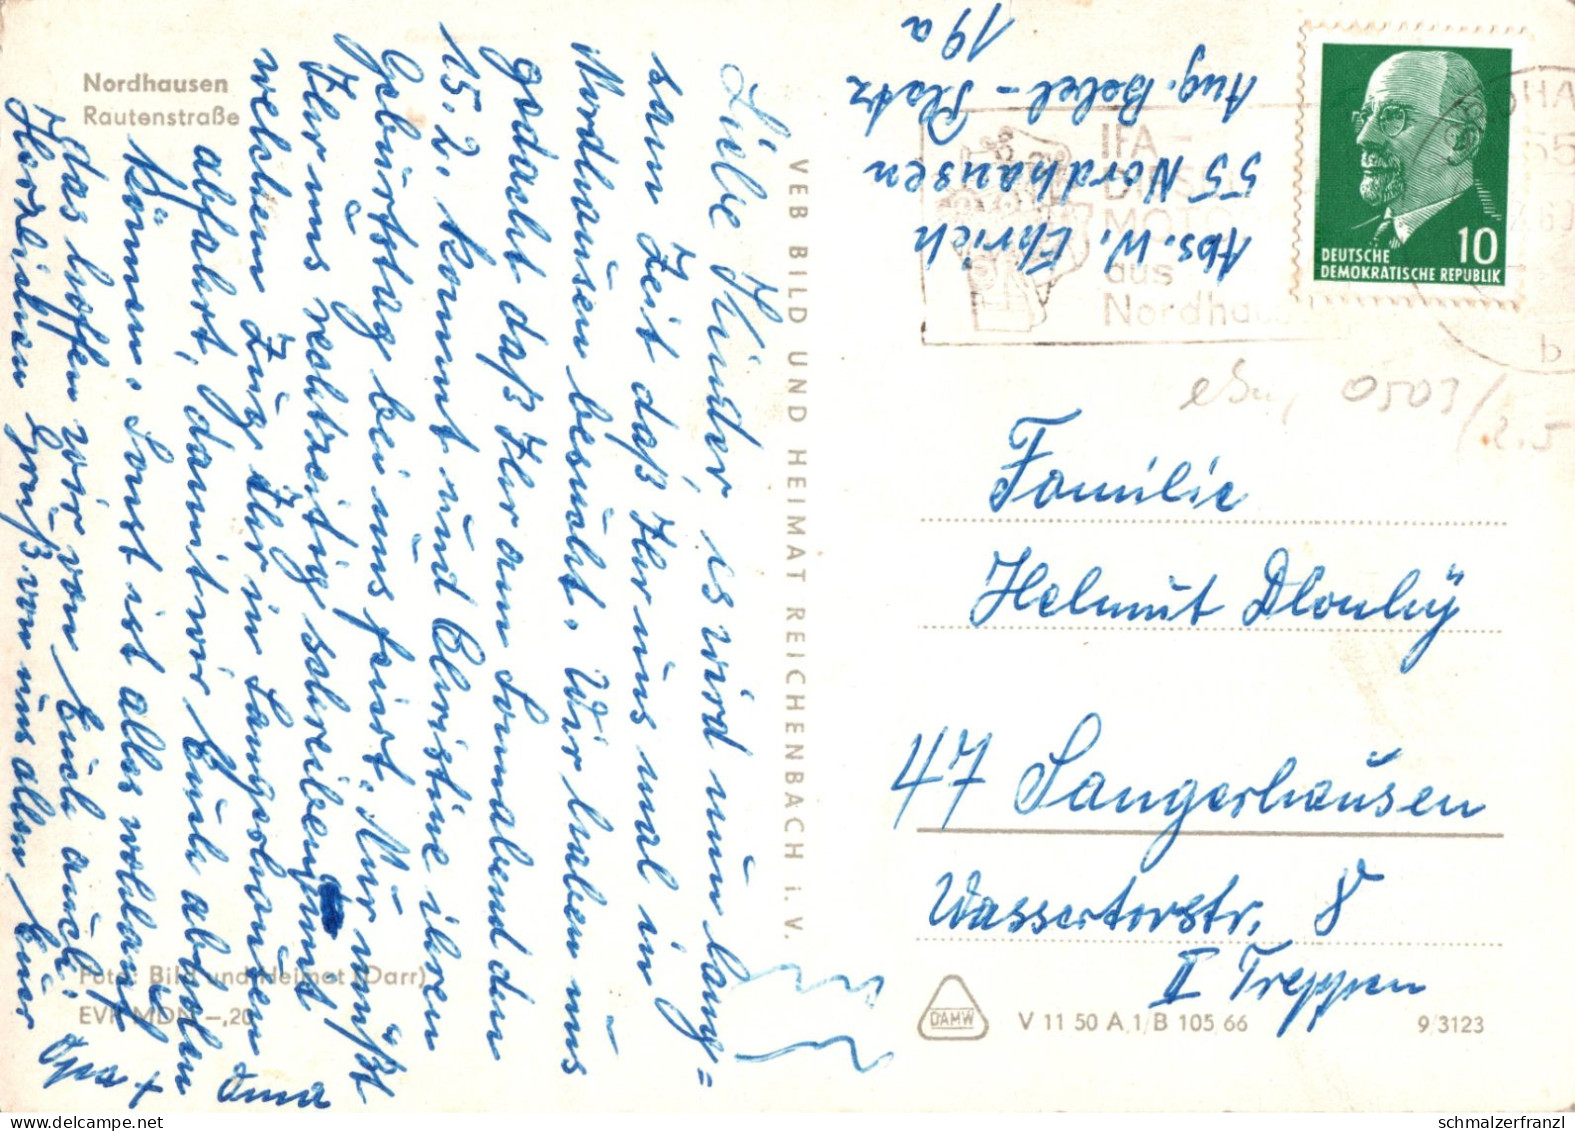 Nordhausen
Rautenstraße
Liebe Kinder, es wird nun lang=
sam Zeit, daß Ihr uns mal in
Nordhausen besucht. Wir haben uns
gedacht daß Ihr am Sonnabend den
15.2. kommt und Christine ihren
Geburtstag bei uns feiert. Nur müßt
Ihr uns rechtzeitig schreiben mit
welchem Zug Ihr in Sangerhausen
abfahrt, damit wir Euch abholen
können. Sonst ist alles wohlauf,
das hoffen wir von Euch auch.
Herzlichen Gruß von uns allen Euer
Opa + Oma
VEB BILD UND HEIMAT REICHENBACH i. V.
Foto: Bild und Heimat (Darr)
EVP MDN -,20
Abs. W. Ehrich
55 Nordhausen
Aug. Bebel-Platz
19a
IFA-
DIESEL
MOTO
aus
Nordhau
55
b
DEUTSCHE
DEMOKRATISCHE REPUBLIK
10
0503/
Familie
Helmut Dlouhÿ
47 Sangerhausen
Wassertorstr. 8
II Treppen
DAMW
V 11 50 A 1/B 105/66
9/3123
schmalzerfranzl